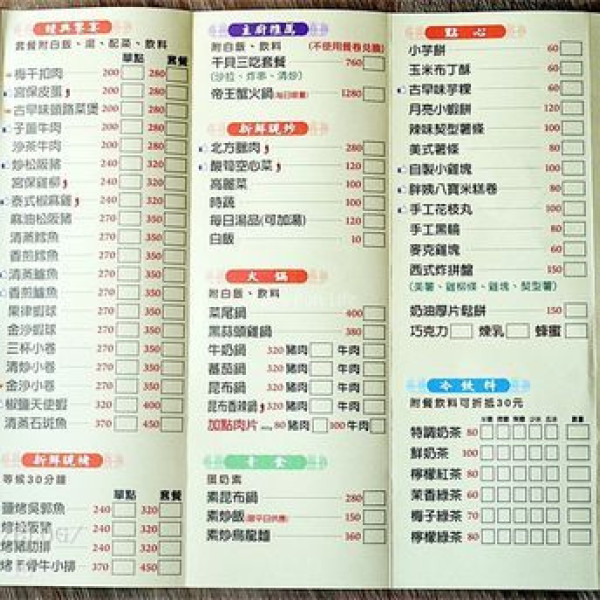 經典套宴
套餐附白飯、湯、配菜、飲料
單點 套餐
梅干扣肉 200 280
宮保皮蛋 200 280
古早味頭路菜煲 200 280
子薑牛肉 200 280
沙茶牛肉 200 280
炒松阪豬 240 320
宮保雞柳 200 280
泰式椒麻雞 240 320
麻油松阪豬 240 320
清蒸鱈魚 270 350
香煎鱈魚 270 350
清蒸鱸魚 270 350
香煎鱸魚 270 350
果律蝦球 270 350
金沙蝦球 270 350
三杯小卷 270 350
清炒小卷 270 350
金沙小卷 270 350
椒鹽天使蝦 320 400
清蒸石斑魚 370 450
新鮮現烤
等候30分鐘
單點 套餐
鹽烤吳郭魚 240 320
烤松阪豬 240 320
烤豬肋排 240 320
烤帶骨牛小排 370 450
主廚推薦
附白飯、飲料 (不使用餐卷兌換)
干貝三吃套餐 760
(沙拉、炸串、清炒)
帝王蟹火鍋(每日限量) 1280
新鮮現炒
北方臘肉 280
酸筍空心菜 100
高麗菜 100
時蔬 100
每日湯品(可加湯) 120
白飯 10
火鍋
附白飯、飲料
菜尾鍋 400
黑蒜頭雞鍋 380
牛奶鍋 320 豬肉 牛肉
蕃茄鍋 320 豬肉 牛肉
昆布鍋 320 豬肉 牛肉
昆布香辣鍋 320 豬肉 牛肉
加點肉片 80 豬肉 100 牛肉
素食
蛋奶素
素昆布鍋 280
素炒飯(限平日供應) 150
素炒烏龍麵 360
點心
小芋餅 60
玉米布丁酥 60
古早味芋粿 60
月亮小蝦餅 120
辣味契型薯條 100
美式薯條 60
自製小雞塊 100
胖姨八寶米糕卷 80
手工花枝丸 100
手工黑輪 80
麥克雞塊 60
西式炸拼盤 150
(美薯、雞柳條、雞塊、契型薯)
奶油厚片鬆餅 150
巧克力 煉乳 蜂蜜
冷飲料
附餐飲料可折抵30元
特調奶茶 80
鮮奶茶 100
檸檬紅茶 80
茉香綠茶 60
梅子綠茶 70
檸檬綠茶 80